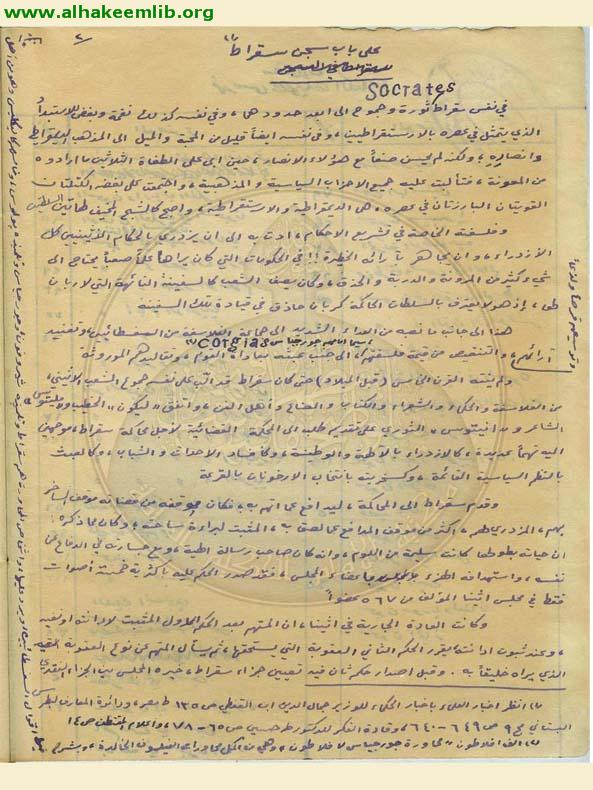 www.alhakeemlib.org
٢
على باب سجن سقراط (١)
Socrates
في نفس سقراط ثورة وجموح الى ابعد حدودهما، وفي نفسه كذلك نقمة وبغض للاستبداد
الذي يتمثل في عصره بالارستقراطيين، وفي نفسه ايضاً قليل من المحبة والميل الى المذهب الديمقراطي
وانصاره، ولكنه لم يحسن صنعاً مع هؤلاء الانصار، حين ابى على الطغاة الثلاثين ما ارادوه
من المعونة، فتألبت عليه جميع الاحزاب السياسية والمذهبية، واجتمعت على بغضه الكتلتان
القويتان البارزتان في عصره، هي الديمقراطية والارستقراطية،
وفلسفته الخاصة في تشريع الاحكام، أدت به الى ان يزدري بالحكام الاثينيين كل
الازدراء، وان يجاهر بآرائه الخطيرة!! في الحكومات التي كان يراها عملاً صعباً يحتاج الى
شيء كثير من المرونة والدربة والحذق، وكان يصف الشعب كالسفينة التائهة التي لا ربان
لها، إذ هو لا يعترف بالسلطات الحاكمة كربان حاذق في قيادة تلك السفينة
هذا الى جانب ما نصبه من العداء الشديد الى جماعة الفلاسفة من السفسطائيين، وتفنيد
لا سيما جورجياس Gorgias (٢)
آرائهم، والتنقيص من قيمة فلسفتهم، الى جنب عبثه بعادات القوم، وتقاليدهم الموروثة
ولم ينته القرن الخامس (قبل الميلاد) حتى كان سقراط قد ألب على نفسه جموع الشعب الاثيني،
من الفلاسفة والحكماء والشعراء والكتاب والصناع وأهل الفن، واتفق «ليكون» الخطيب و
الشاعر و«انيتوس» الثوري على تقديم طلب الى المحكمة القضائية لأجل محاكمة سقراط، موجهين
اليه تهماً عديدة، كالازدراء بالآلهة والوطنية، وكإفساد الاحداث والشباب، وكالعبث
بالنظم السياسية القائمة، وكسخريته بانتخاب الارخونات بالقرعة
وقدم سقراط الى المحاكمة، ليدافع عما اتهم به، فكان موقفه من قضاته موقف الساخر
بهم، المزدري لهم، اكثر من موقف المدافع عما لصق به، المثبت لبراءة ساحته، وكان مما ذكره:
ان حياته بطولها كانت سليمة من اللوم، وانه كان صاحب رسالة الهية، ومع جسارته في الدفاع عن
نفسه، واستهدافه الهزء بأعضاء المجلس، فقد صدر الحكم عليه بأكثرية خمسة أصوات
فقط في مجلس اثينا المؤلف من ٥٦٧ عضواً
وكانت العادة الجارية في اثينا، ان المتهم بعد الحكم الاول المثبت لادانته او نفيه
، وعند ثبوت ادانته يقرر الحكم الثاني العقوبة التي يستحقها، ثم يسأل المتهم عن نوع العقوبة
الذي يراه خليقاً به. وقبل اصدار حكم ثان فيه تعيين جزاء سقراط، خيره المجلس بين الجزاء النقدي
(١) انظر اخبار العلماء بأخبار الحكماء للوزير جمال الدين ابن القفطي ص ١٣٥ ط مصر، ودائرة المعارف لبطرس
البستاني مج ٩ ص ٦٤٩ - ٦٤٠، وقادة الفكر للدكتور طه حسين ص ٦٥ - ٧٨، واعلام المقتطف ص ١٤
(٢) الف افلاطون «محاورة جورجياس» لافلاطون، وهي من اكمل محاورات الفيلسوف الخالدة، وشرح